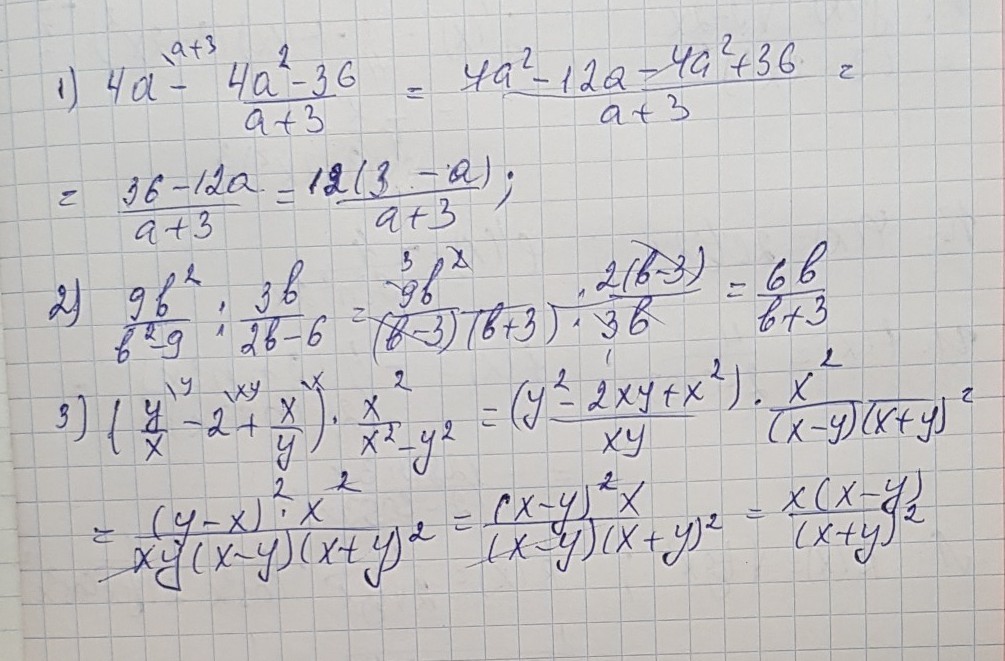 1) 4a \a+3 - (4a² - 36)/(a+3) = (4a² - 12a - 4a² + 36)/(a+3) =
= (36 - 12a)/(a+3) = 12(3 - a)/(a+3);
2) 9b²/(b² - 9) : 3b/(2b - 6) = 9b²/((b-3)(b+3)) · 2(b-3)/3b = 6b/(b+3)
3) (y/x \y - 2 \xy + x/y \x) · x²/(x² - y²) = (y² - 2xy + x²)/xy · x²/((x-y)(x+y)) =
= (y-x)² · x²/(xy(x-y)(x+y)²) = (x-y)² x/((x-y)(x+y)²) = x(x-y)/(x+y)²